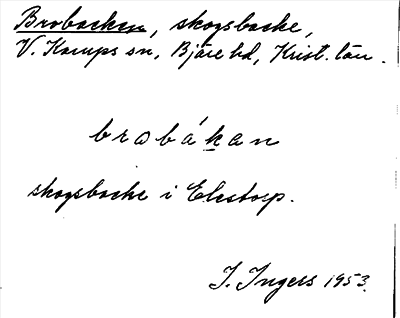 Brobacken, skogsbacke,
V. Karups sn, Bjäre hd, Krist. län.
brobákan
skogsbacke i Elestorp.
I. Ingers 1953.